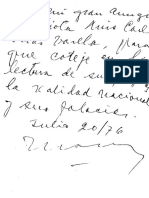 mi gran amigo
Luis Car
los Varella, para
que coteje en la
lectura de su
la realidad nacional
y sus falacias.
Julio 20/76